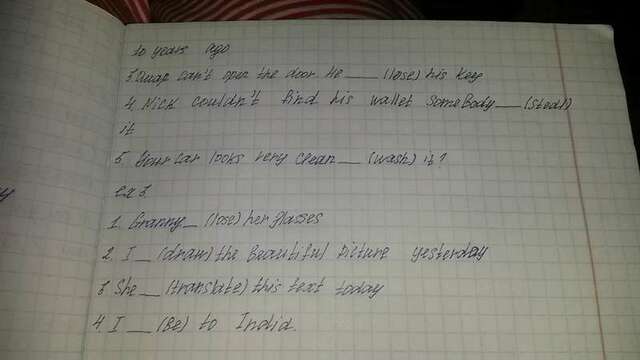 10 years ago
3 can't open the door he ___ (lose) his key
4. Nick couldn't find his wallet someBody ___ (steal)
it
5. Your car looks very clean ___ (wash) it?
ex 3.
1. Granny _ (lose) her glasses
2. I _ (draw) the Beautiful picture yesterday
3 She __ (translate) this text today
4. I __ (Be) to India.